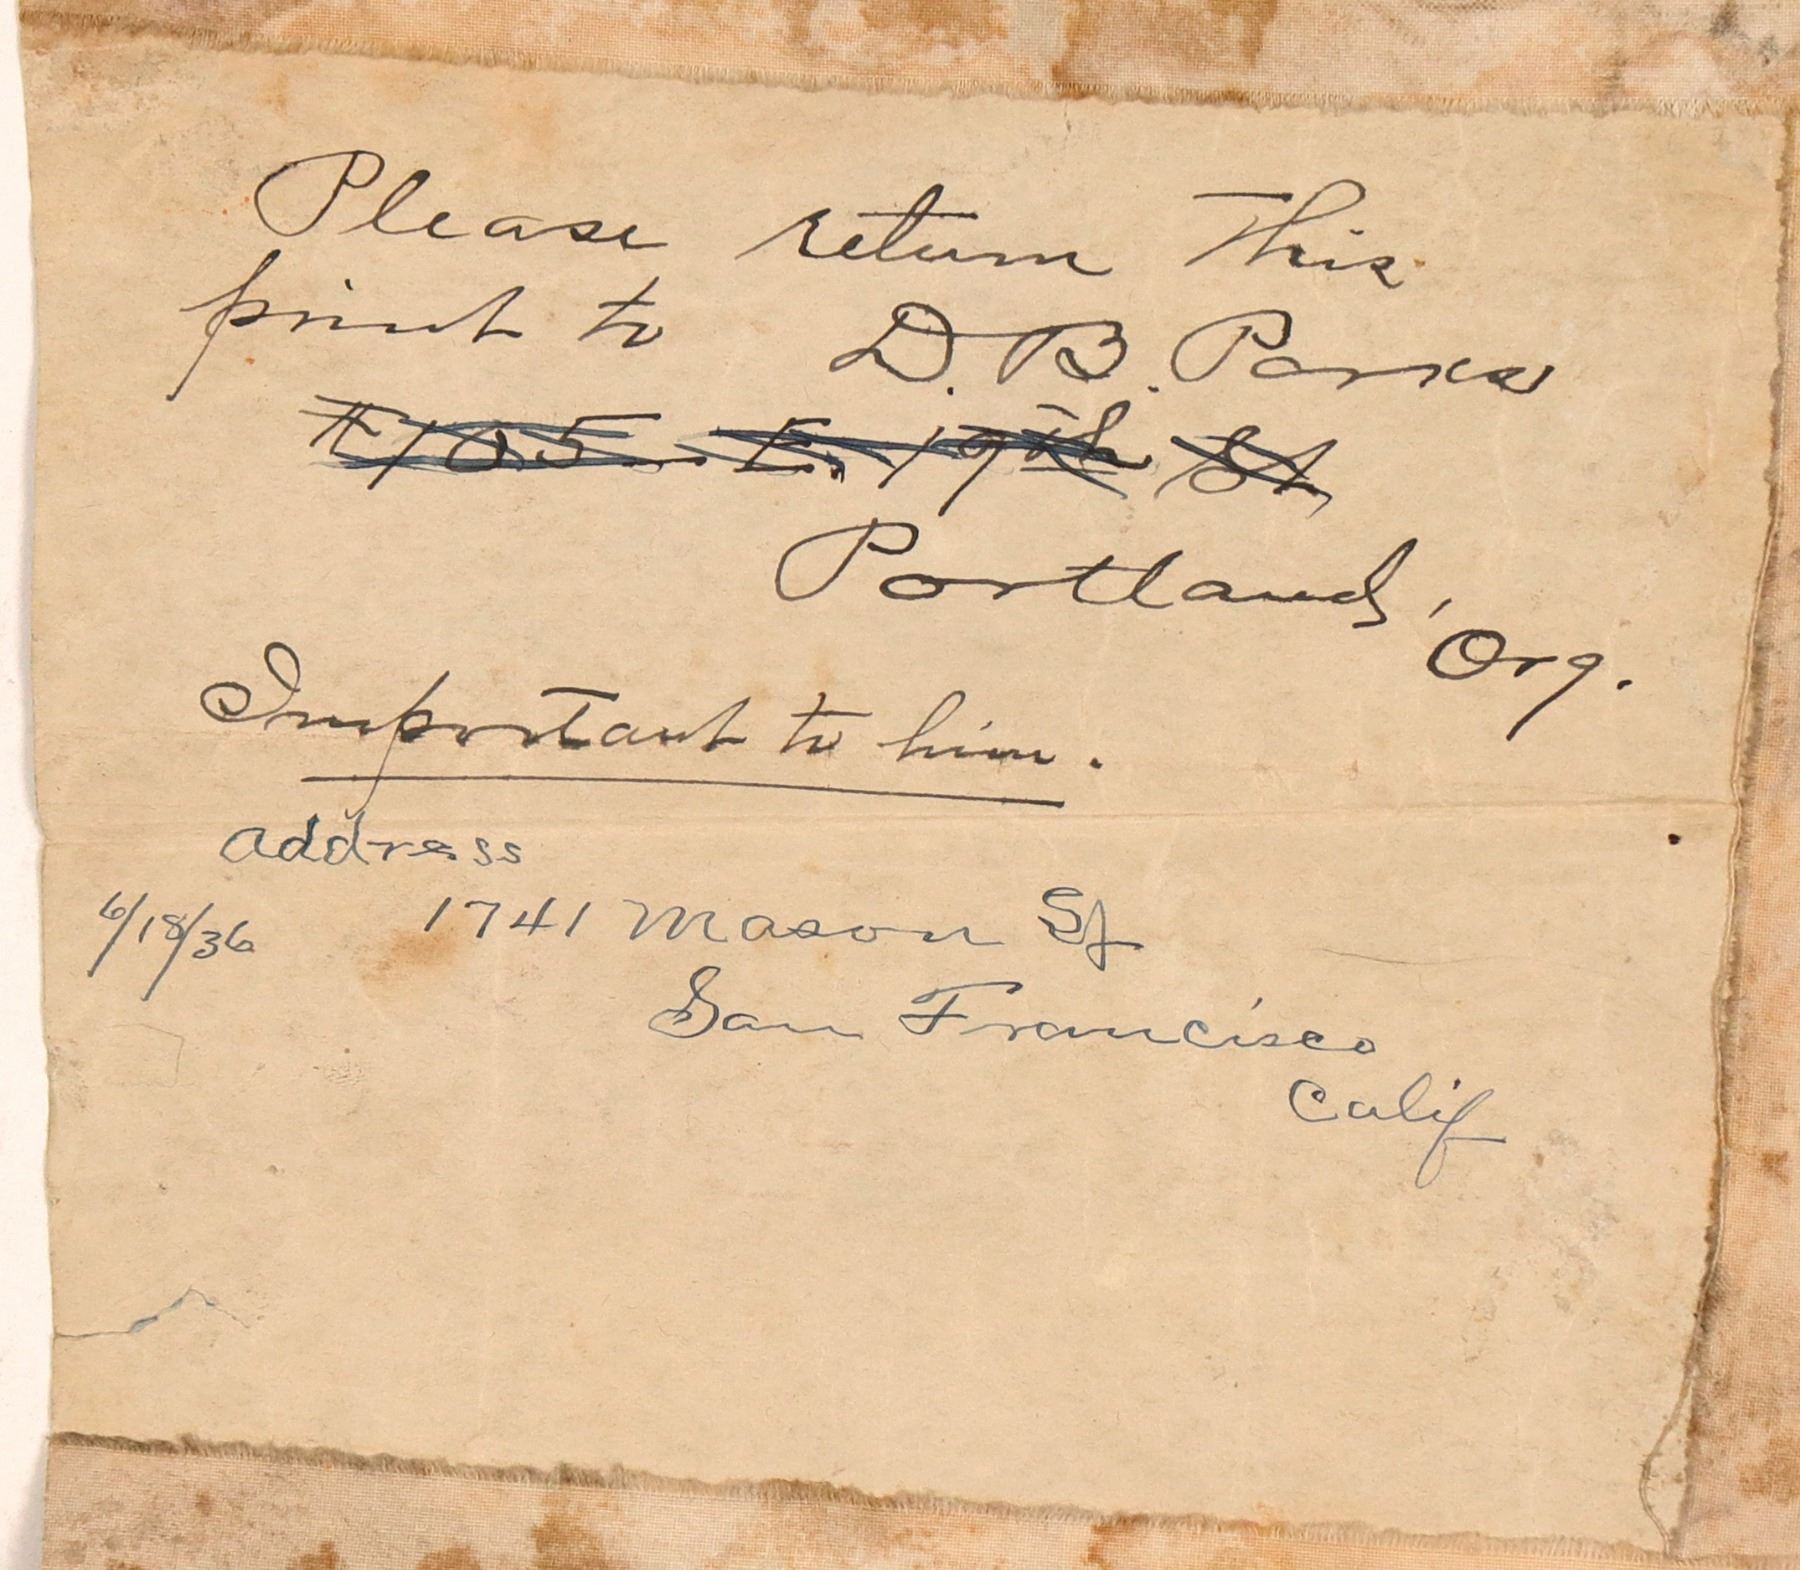 Please return This
print to D. B. Parks
#105. E. 19th St.
Portland, Org.
Important to him.
address
6/18/36 1741 Mason St
San Francisco
Calif